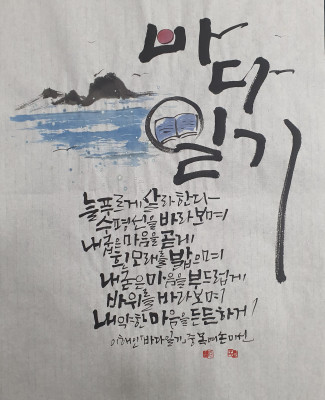 바다
일기
늘푸르게 살라한다
수평선을 바라보며
내굽은 마음을 곧게
흰 모래를 밟으며
내 굳은 마음을 부드럽게
바위를 바라보며
내약한 마음을 든든하게
이해인 '바다일기' 중